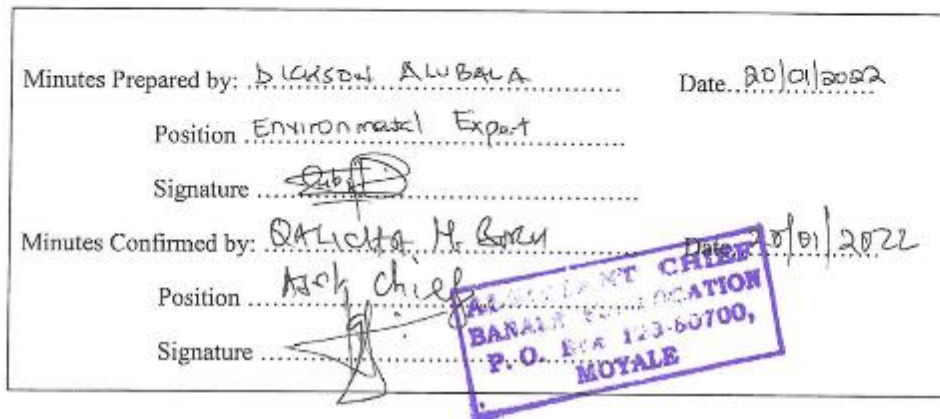 Minutes Prepared by: DICKSON ALUBALA Date 20/01/2022
Position Environmental Expert
Signature
Minutes Confirmed by: QALICHA H. BORU Date 20/01/2022
Position Asst Chief
Signature
ASSISTANT CHIEF
LOCATION
P. O. Box 123-60700,
MOYALE